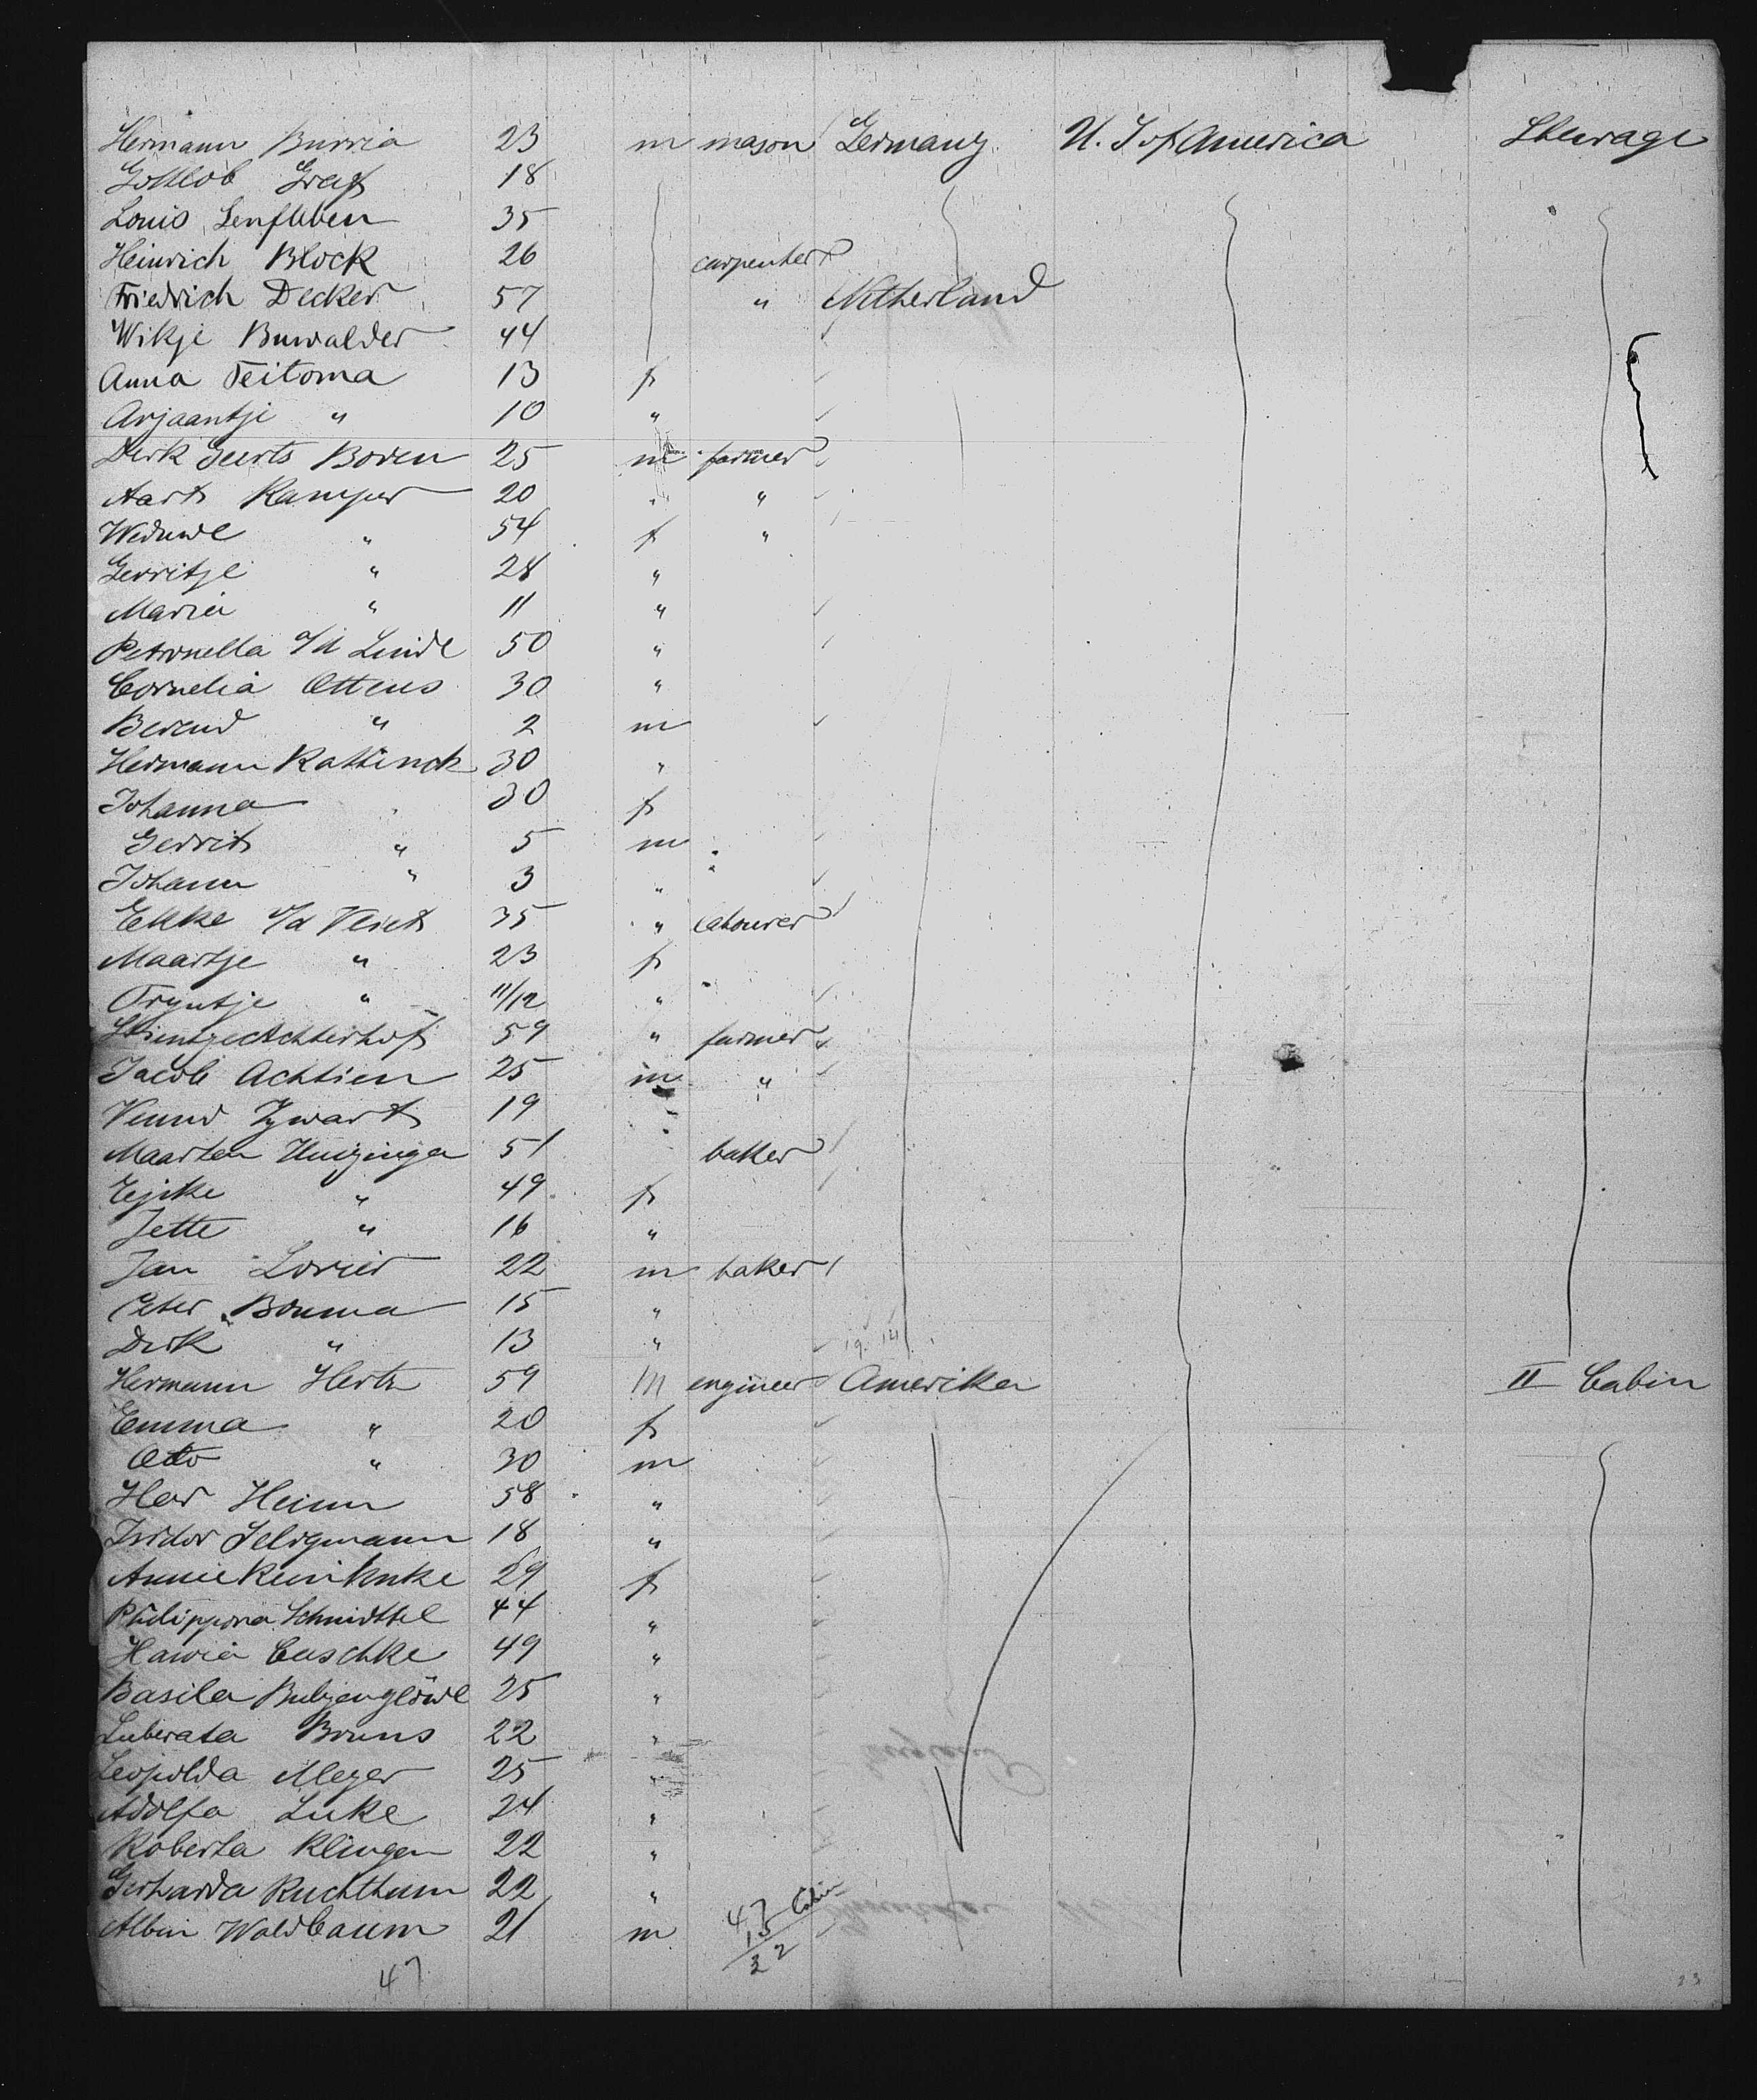 Hermann Burria 23 m mason Germany U. S of America Steerage
Gottlob Graf 18
Louis Senfleben 35
Heinrich Block 26 carpenter
Friedrich Decker 57 " Netherland
Wikje Buwalder 44
Anna Feitoma 13 f
Arjaantje " 10 "
Derk Geerts Boven 25 m farmer
Aart Kamper 20 " "
Weduwe " 54 f "
Gerritje " 28 "
Maria " 11 "
Petronella v/d Linde 50 "
Cornelia Ottens 30 "
Berend " 2 m
Hermann Rattinck 30 "
Johanna 30 f
Gerrit " 5 m
Johann " 3 "
Ekke v/d Vliet 35 " labourer
Maartje " 23 f
Tryntje " 11/12 "
Stientje Achterhof 59 " farmer
Jacob Achtien 25 m "
Zwart 19
Maarten Huizinga 51 baker
Eejke " 49 f
Jette " 16 "
Jan Lorier 22 m baker
Peter Bouma 15 "
Dirk " 13 "
Hermann Hertz 59 m engineer Amerika II Cabin
Emma " 20 f
Otto " 30 m
Her Heinn 58 "
Isidor Seligmann 18 "
Annie 29 f
Philippona Schmidttel 44 "
Hawia Caschke 49 "
Basila 25 "
Luberata Bruns 22 "
Leopolda Meyer 25 "
Adolfa Luke 24 "
Roberta Klingen 22 "
Gerharda Ruchthum 22 "
Albin Waldbaum 21 m
47 Cabin
15
32
47